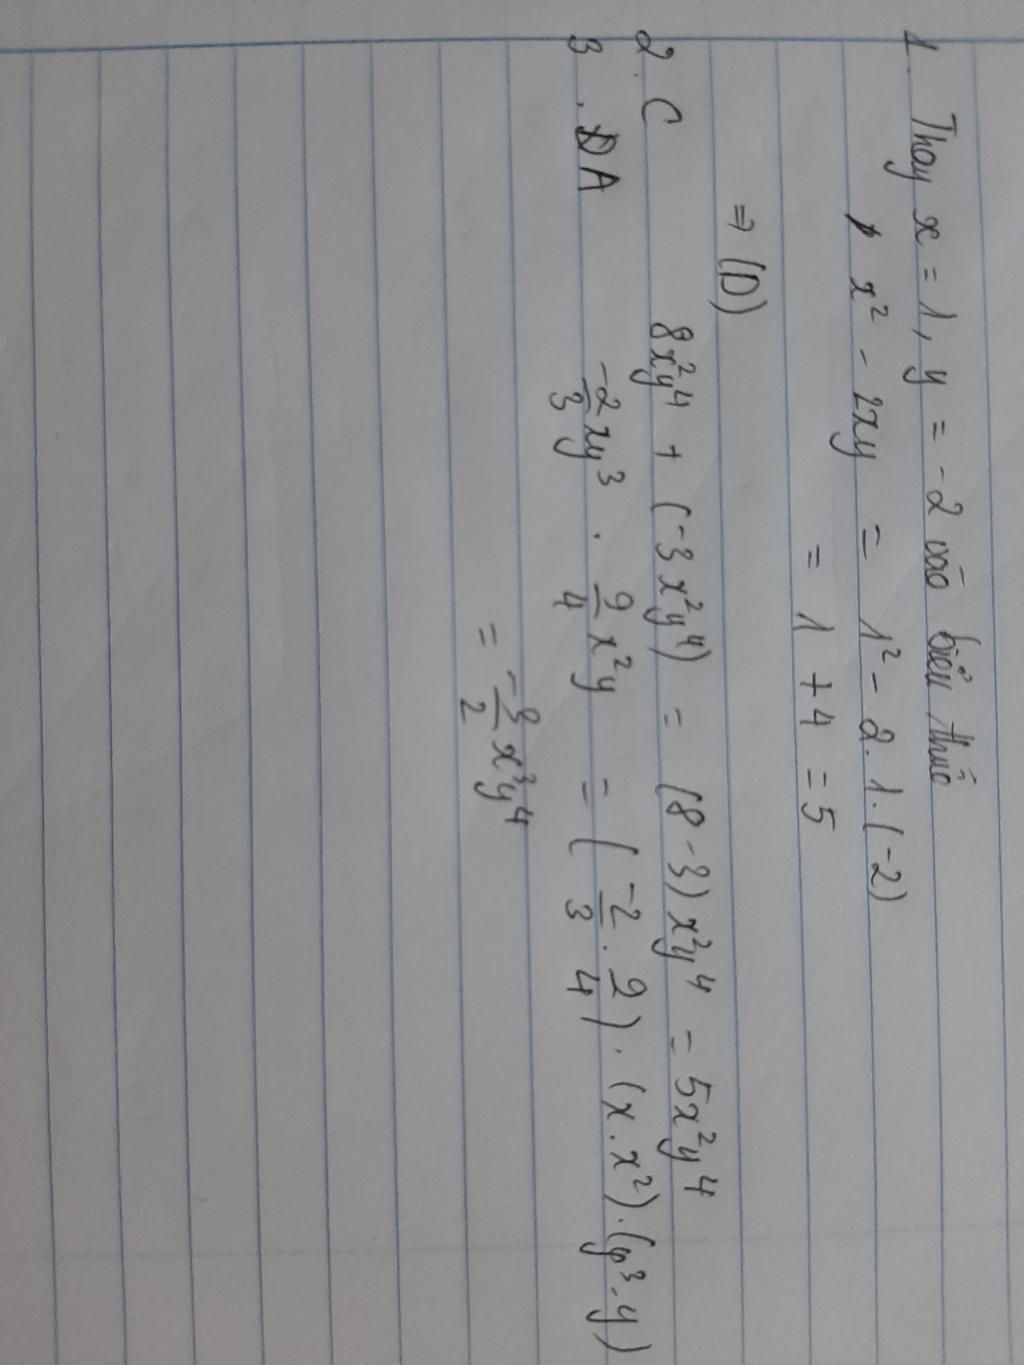 1. Thay x = 1, y = -2 vào biểu thức
x² - 2xy = 1² - 2.1.(-2)
= 1 + 4 = 5
⇒ (D)
2. C 8x²y⁴ + (-3x²y⁴) = (8 - 3)x²y⁴ = 5x²y⁴
3. A -2/3 xy³ . 9/4 x²y = (-2/3 . 9/4) . (x.x²).(y³.y)
= -9/2 x³y⁴